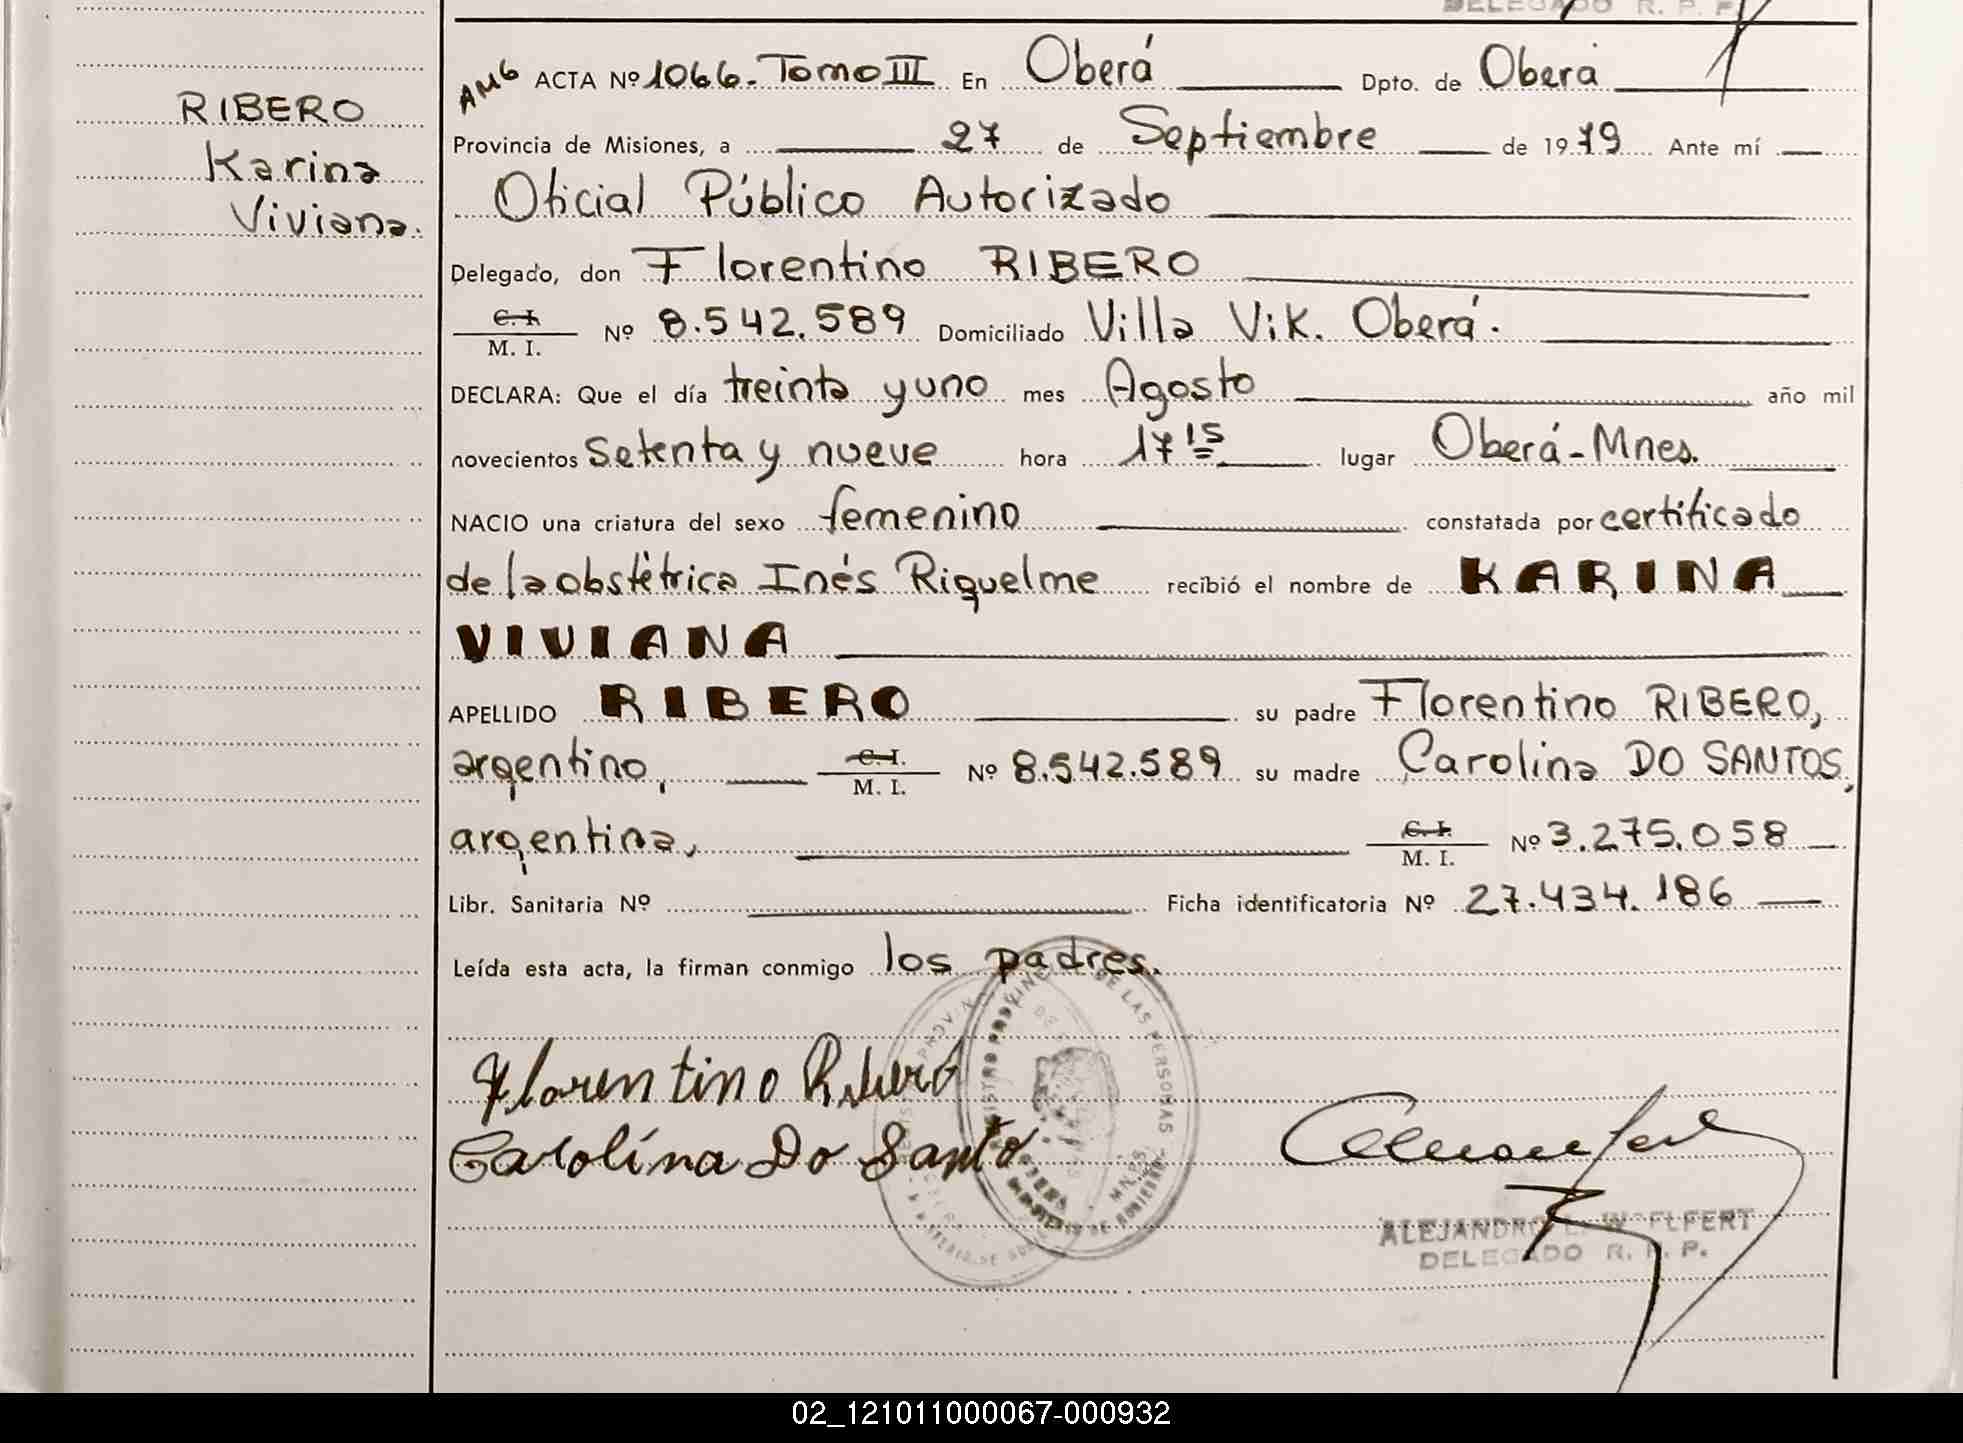 DELEGADO R. P. P.
RIBERO
Karina
Viviana.
AMG ACTA Nº 1066. Tomo III En Oberá Dpto. de Oberá
Provincia de Misiones, a 27 de Septiembre de 1979 Ante mí
Oficial Público Autorizado
Delegado, don Florentino RIBERO
C. I. / M. I. Nº 8.542.589 Domiciliado Villa Vik. Oberá.
DECLARA: Que el día treinta y uno mes Agosto año mil
novecientos setenta y nueve hora 17 15 lugar Oberá-Mnes.
NACIO una criatura del sexo femenino constatada por certificado
de la obstétrica Inés Riquelme recibió el nombre de KARINA
VIVIANA
APELLIDO RIBERO su padre Florentino RIBERO,
argentino, C. I. / M. I. Nº 8.542.589 su madre Carolina DO SANTOS,
argentina, C. I. / M. I. Nº 3.275.058
Libr. Sanitaria Nº Ficha identificatoria Nº 27.434.186
Leída esta acta, la firman conmigo los padres.
Florentino Ribero
Carolína Do Santo
DE LAS PERSONAS
ALEJANDRO WOELFERT
DELEGADO R. P. P.
02_121011000067-000932